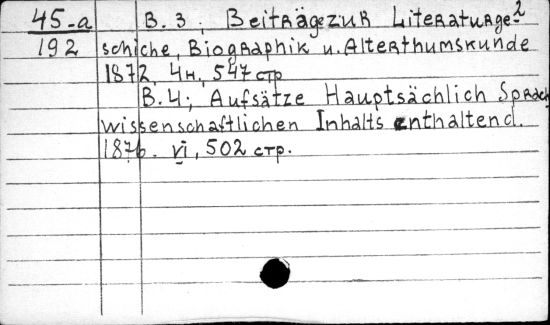 45-a B. 3; Beiträge zur Literaturge- 2
192 schiche, Biographik u. Alterthumskunde
1872, 4н, 547 стр
B. 4; Aufsätze Hauptsächlich Sprach
wissenschaftlichen Inhalts enthaltend.
1876. VI, 502 стр.